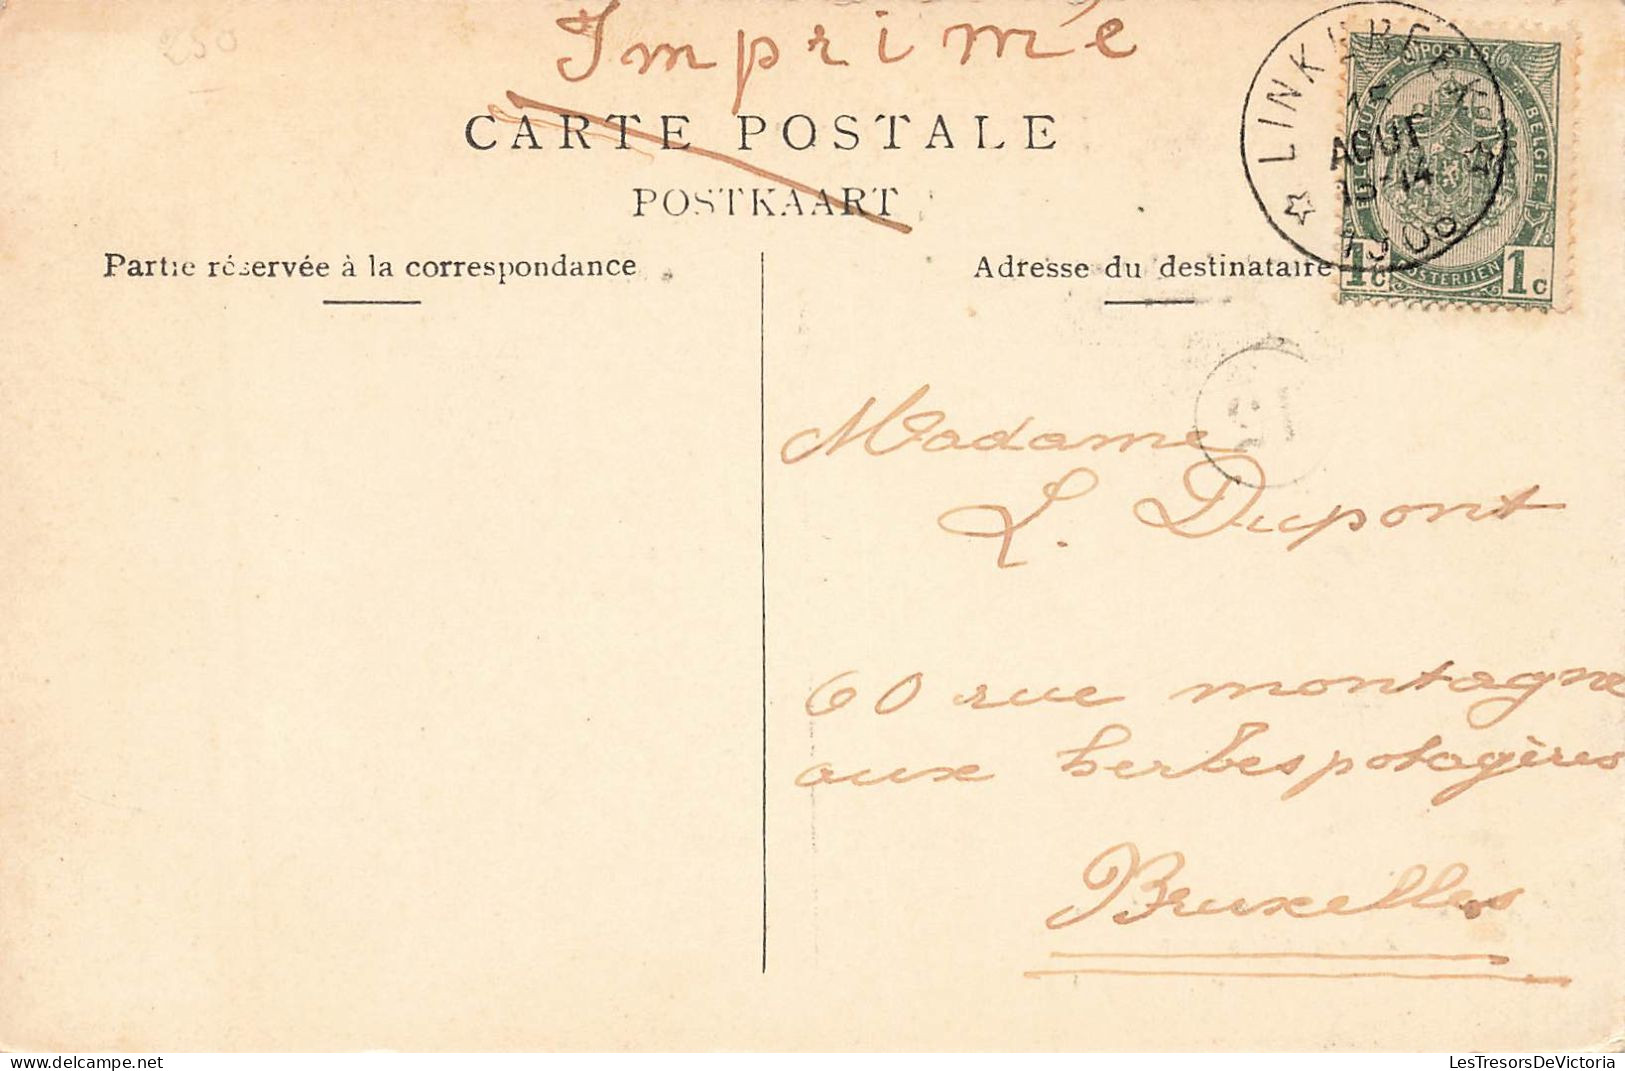 250
Imprimé
CARTE POSTALE
POSTKAART
Partie réservée à la correspondance
Adresse du destinataire
LINKEBEEK
15
AOUT
13-14
1908
POSTES
BELGIQUE
BELGIE
POSTERIJEN
1c
1c
Madame
L. Dupont
60 rue montagne
aux herbes potagères
Bruxelles
LesTresorsDeVictoria